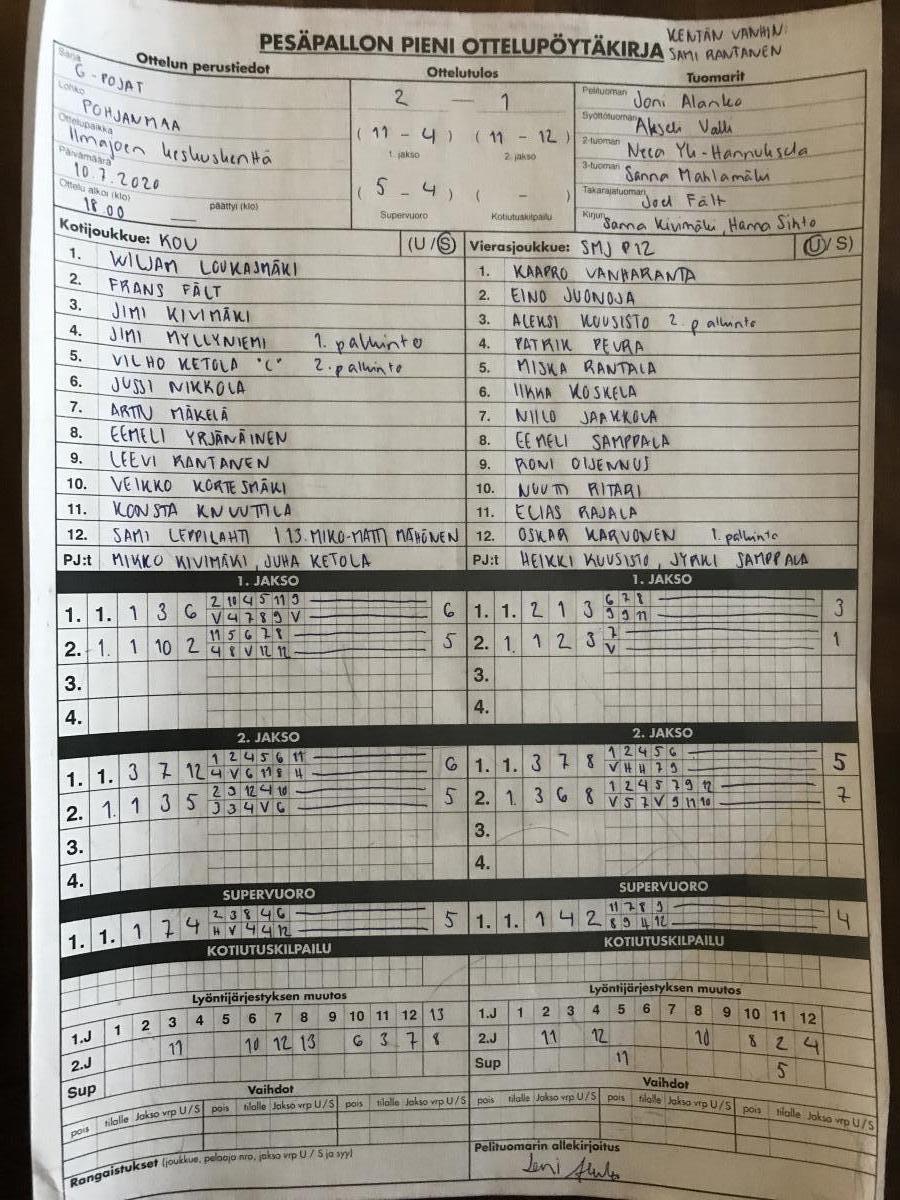 PESÄPALLON PIENI OTTELUPÖYTÄKIRJA
KENTÄN VANHIN:
SAMI RANTANEN
Ottelun perustiedot
Sarja G-POJAT
Lohko POHJANMAA
Ottelupaikka Ilmajoen keskuskenttä
Päivämäärä 10.7.2020
Ottelu alkoi (klo) 18.00 päättyi (klo)
Ottelutulos
2 — 1
(11 - 4) (11 - 12)
1. jakso 2. jakso
(5 - 4) ( - )
Supervuoro Kotiutuskilpailu
Tuomarit
Pelituomari Joni Alanko
Syöttötuomari Akseli Valli
2-tuomari Neea Yli-Hannuksela
3-tuomari Sanna Mahlamäki
Takarajatuomari Joel Fält
Kirjuri Sanna Kivimäki, Hanna Sihto
Kotijoukkue: KOU (U/S)
1. WILJAM LOUKASMÄKI
2. FRANS FÄLT
3. JIMI KIVIMÄKI
4. JIMI MYLLYNIEMI 1. palkinto
5. VILHO KETOLA "C" 2. palkinto
6. JUSSI NIKKOLA
7. ARTTU MÄKELÄ
8. EEMELI YRJÄNÄINEN
9. LEEVI RANTANEN
10. VEIKKO KORTESMÄKI
11. KONSTA KNUUTTILA
12. SAMI LEPPILAHTI 13. MIKO-MATTI MÄHÖNEN
PJ:t MIKKO KIVIMÄKI, JUHA KETOLA
Vierasjoukkue: SMJ P12 (U/S)
1. KAAPRO VANHARANTA
2. EINO JUONOJA
3. ALEKSI KUUSISTO 2. palkinto
4. PATRIK PEURA
5. MISKA RANTALA
6. IIKKA KOSKELA
7. NIILO JAAKKOLA
8. EEMELI SAMPPALA
9. RONI OIJENNUS
10. NUUTTI RITARI
11. ELIAS RAJALA
12. OSKAR KARVONEN 1. palkinto
PJ:t HEIKKI KUUSISTO, JYRKI SAMPPALA
1. JAKSO
1. 1. 1 3 6 2 10 4 5 11 9 6
V 4 7 8 9 V
2. 1. 1 10 2 11 5 6 7 8 5
4 8 V 12 12
3.
4.
1. JAKSO
1. 1. 2 1 3 6 7 8 3
9 9 11
2. 1. 1 2 3 7 1
V
3.
4.
2. JAKSO
1. 1. 3 7 12 1 2 4 5 6 11 6
4 V 6 11 8 H
2. 1. 1 3 5 2 3 12 4 10 5
3 3 4 V 6
3.
4.
2. JAKSO
1. 1. 3 7 8 1 2 4 5 6 5
V H H 7 9
2. 1. 3 6 8 1 2 4 5 7 9 12 7
V 5 7 V 9 11 10
3.
4.
SUPERVUORO
1. 1. 1 7 4 2 3 8 4 6 5
H V 4 4 12
SUPERVUORO
1. 1. 1 4 2 11 7 8 9 4
8 9 11 12
KOTIUTUSKILPAILU
KOTIUTUSKILPAILU
Lyöntijärjestyksen muutos
1.J 1 2 3 4 5 6 7 8 9 10 11 12 13
2.J 11 10 12 13 6 3 7 8
Sup
Lyöntijärjestyksen muutos
1.J 1 2 3 4 5 6 7 8 9 10 11 12
2.J 11 12 10 8 2 4
Sup 11 5
Vaihdot
pois tilalle Jakso vrp U/S pois tilalle Jakso vrp U/S pois tilalle Jakso vrp U/S
Vaihdot
pois tilalle Jakso vrp U/S pois tilalle Jakso vrp U/S pois tilalle Jakso vrp U/S
Rangaistukset (joukkue, pelaaja nro, jakso vrp U / S ja syy)
Pelituomarin allekirjoitus